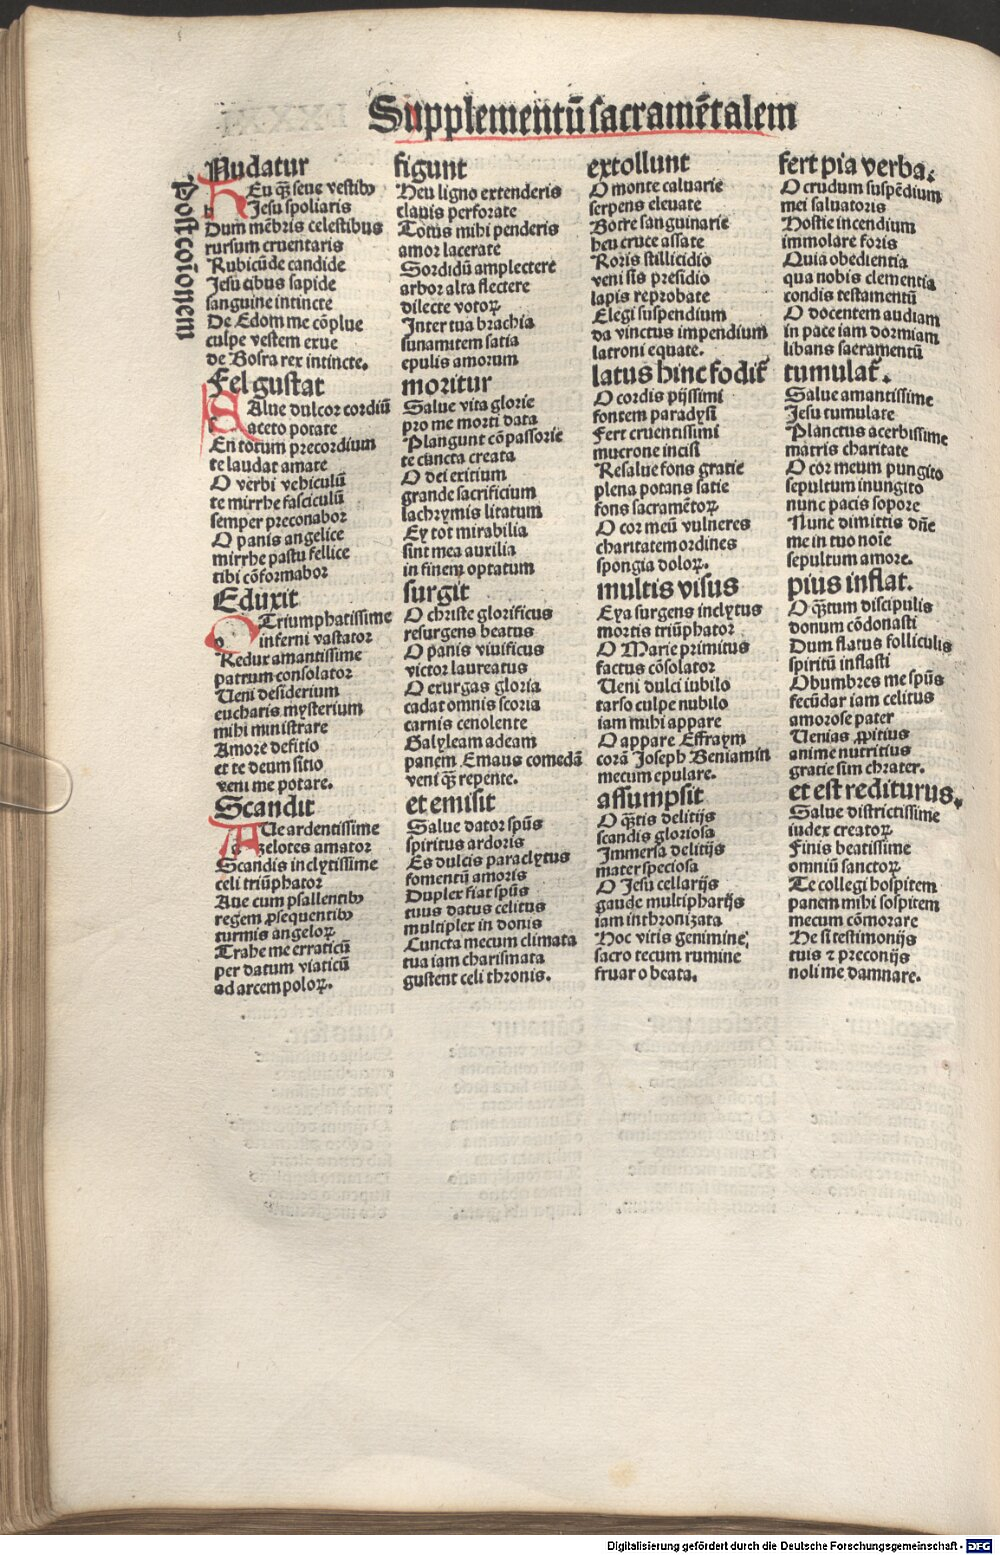 Supplementū sacramētalem
Postcōionem
Nudatur
HEu q̄ꝫ seue vestibꝫ
Jesu spoliaris
Dum mēbris celestibus
rursum cruentaris
Rubicūde candide
Jesu cibus sapide
sanguine intincte
De Edom me cōplue
culpe vestem exue
de Bosra rex intincte.
figunt
Heu ligno extenderis
clauis perforate
Totus mihi penderis
amor lacerate
Sordidū amplectere
arbor alta flectere
dilecte votoꝝ
Inter tua brachia
sunamitem satia
epulis amorum
extollunt
O monte caluarie
serpens eleuate
Botre sanguinarie
heu cruce assate
Roris stillicidio
veni sis presidio
lapis reprobate
Elegi suspendium
da vinctus impendium
latroni equate.
fert pia verba.
O crudum suspēdium
mei saluatoris
Hostie incendium
immolare foris
Quia obedientia
qua nobis clementia
condis testamentū
O docentem audiam
in pace iam dormiam
libans sacramentū
Fel gustat
SAlue dulcor cordiū
aceto potate
En totum precordium
te laudat amate
O verbi vehiculū
te mirrhe fasciculū
semper preconabor
O panis angelice
mirrhe pastu fellice
tibi cōformabor
moritur
Salue vita glorie
pro me morti data
Plangunt cōpassorie
te cuncta creata
O dei exitium
grande sacrificium
lachrymis litatum
Ey tot mirabilia
sint mea auxilia
in finem optatum
latus hinc fodit̄
O cordis pijssimi
fontem paradysi
Fert cruentissimi
mucrone incisi
Resalue fons gratie
plena potans satie
fons sacramētoꝝ
O cor meū vulneres
charitatem ordines
spongia doloꝝ.
tumulat̄.
Salue amantissime
Jesu tumulate
Planctus acerbissime
matris charitate
O cor meum pungito
sepultum inungito
nunc pacis sopore
Nunc dimittis dn̄e
me in tuo noīe
sepultum amore.
Eduxit
O Triumphatissime
inferni vastator
Redux amantissime
patrum consolator
Ueni desiderium
eucharis mysterium
mihi ministrare
Amore defitio
et te deum sitio
veni me potare.
surgit
O christe glorificus
resurgens beatus
O panis viuificus
victor laureatus
O exurgas gloria
cadat omnis scoria
carnis cenolente
Galyleam adeam
panem Emaus comedā
veni q̄ꝫ repente.
multis visus
Eya surgens inclytus
mortis triūphator
O Marie primitus
factus cōsolator
Ueni dulci iubilo
tarso culpe nubilo
iam mihi appare
O appare Effraym
corā Joseph Beniamin
mecum epulare.
pius inflat.
O q̄ꝫtum discipulis
donum cōdonasti
Dum flatus folliculis
spiritū inflasti
Obumbres me spūs
fecūdar iam celitus
amorose pater
Uenias ꝓpitius
anime nutritius
gratie sim chrater.
Scandit
AUe ardentissime
zelotes amator
Scandis inclytissime
celi triūphator
Aue cum psallentibꝫ
regem ꝓsequentibꝫ
turmis angeloꝝ
Trahe me erraticū
per datum viaticū
ad arcem poloꝝ.
et emisit
Salue dator spūs
spiritus ardoris
Es dulcis paraclytus
fomentū amoris
Duplex fiat spūs
tuus datus celitus
multiplex in donis
Cuncta mecum climata
tua iam charismata
gustent celi thronis.
assumpsit
O q̄ꝫtis delitijs
scandis gloriosa
Immersa delitijs
mater speciosa
O Jesu cellarijs
gaude multipharijs
iam inthronizata
Hoc vitis genimine
sacro tecum rumine
fruar o beata.
et est rediturus.
Salue districtissime
iudex creatoꝝ
Finis beatissime
omniū sanctoꝝ
Te collegi hospitem
panem mihi sospitem
mecum cōmorare
Ne si testimonijs
tuis ⁊ preconijs
noli me damnare.
Digitalisierung gefördert durch die Deutsche Forschungsgemeinschaft - DFG